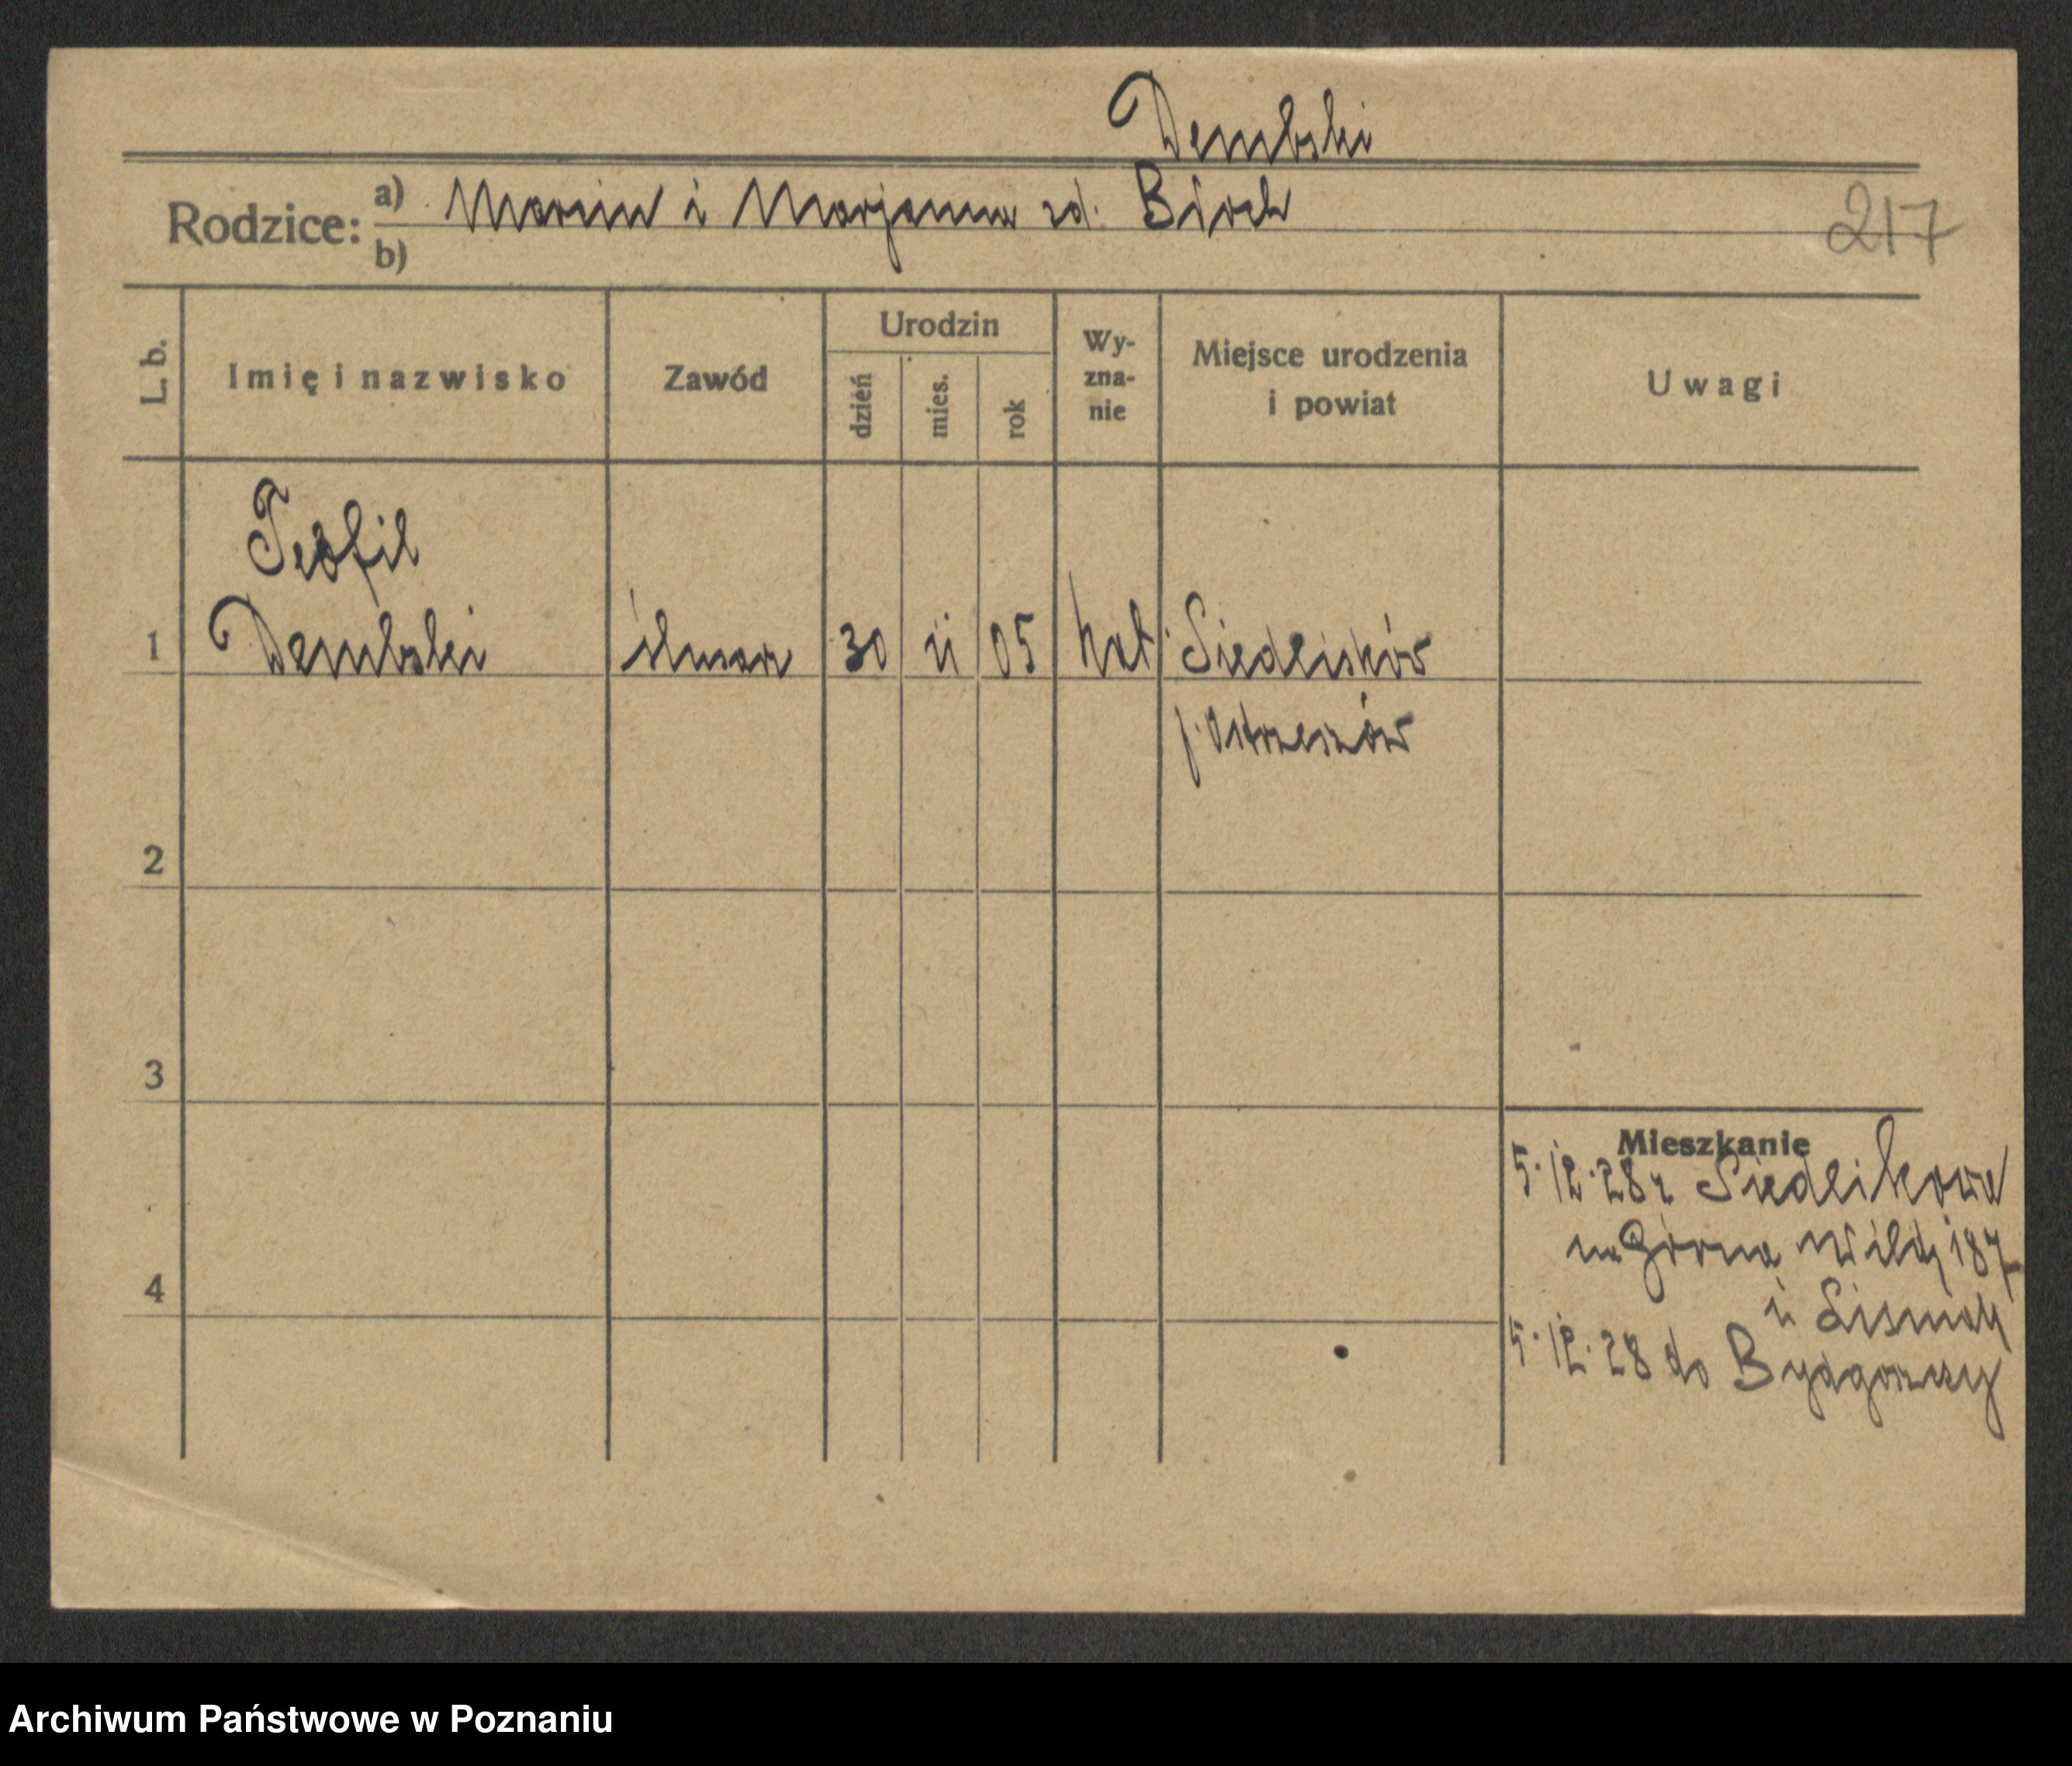 Dembski
Rodzice: a) Marcin i Marjanna zd. Birch
b)
217
L. b.
Imię i nazwisko
Zawód
Urodzin
dzień
mies.
rok
Wy-
zna-
nie
Miejsce urodzenia
i powiat
Uwagi
Teofil
1 Dembski ślusarz 30 11 05 kat. Siedlików
p. Ostrzeszów
2
3
Mieszkanie
5.12.28 z Siedlikowa
na Górną Wildę 187
4
u
5.12.28 do Bydgoszczy
Archiwum Państwowe w Poznaniu